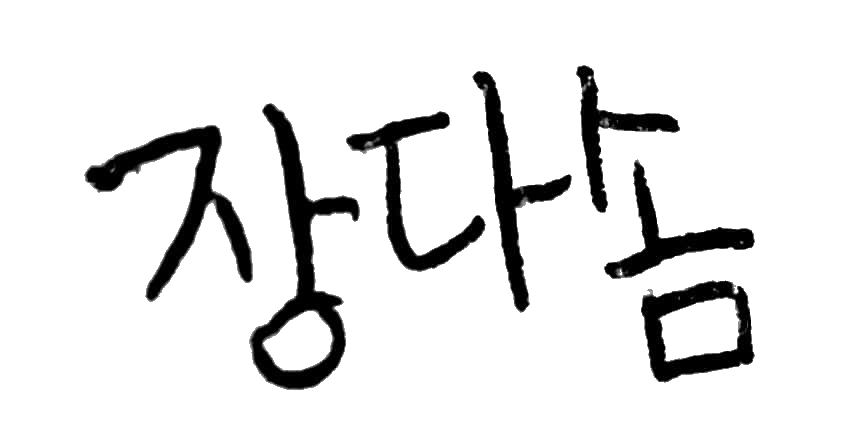 장다솜